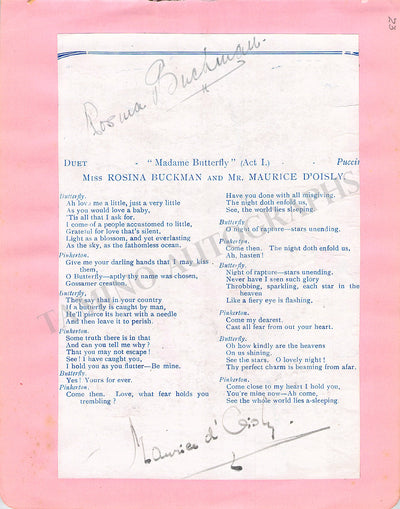 23
Rosina Buckman
DUET - "Madame Butterfly" (Act I.) - Puccini
MISS ROSINA BUCKMAN AND MR. MAURICE D'OISLY.
Butterfly.
Ah love me a little, just a very little
As you would love a baby,
'Tis all that I ask for.
I come of a people accustomed to little,
Grateful for love that's silent.
Light as a blossom, and yet everlasting
As the sky, as the fathomless ocean.
Pinkerton.
Give me your darling hands that I may kiss
them,
O Butterfly—aptly thy name was chosen,
Gossamer creation.
Butterfly.
They say that in your country
If a butterfly is caught by man,
He'll pierce its heart with a needle
And then leave it to perish.
Pinkerton.
Some truth there is in that
And can you tell me why?
That you may not escape!
See! I have caught you,
I hold you as you flutter—Be mine.
Butterfly.
Yes! Yours for ever.
Pinkerton.
Come then. Love, what fear holds you
trembling?
Have you done with all misgiving.
The night doth enfold us,
See, the world lies sleeping.
Butterfly.
O night of rapture—stars unending.
Pinkerton.
Come then. The night doth enfold us,
Ah, hasten!
Butterfly.
Night of rapture—stars unending.
Never have I seen such glory
Throbbing, sparkling, each star in the
heaven
Like a fiery eye is flashing.
Pinkerton.
Come my dearest.
Cast all fear from out your heart.
Butterfly.
Oh how kindly are the heavens
On us shining.
See the stars. O lovely night!
Thy perfect charm is beaming from afar.
Pinkerton.
Come close to my heart I hold you,
You're mine now—Ah come,
See the whole world lies a-sleeping.
Maurice d'Oisly
TAMINO AUTOGRAPHS